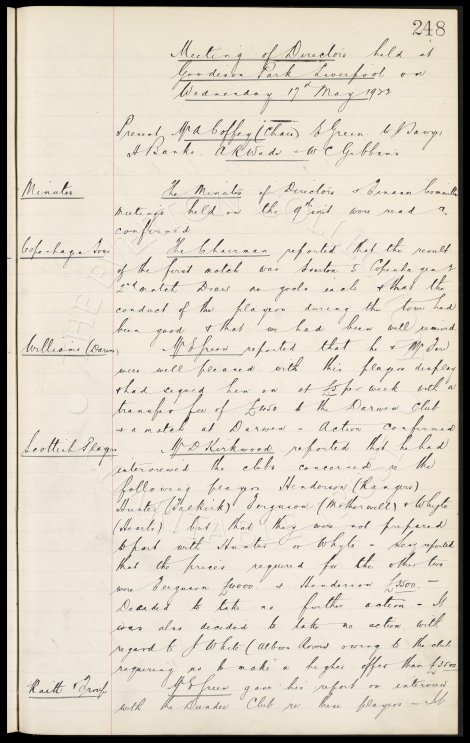 248
Meeting of Directors held at
Goodison Park Liverpool on
Wednesday 17th May 1922
Present Mr A Coffey (Chair) E Green W J Sawyer
A Banks. A R Wade & W C Gibbins
Minutes
The Minutes of Directors & Finance Committee
meetings held on the 9th inst were read &
confirmed
Copenhagen Tour
The Chairman reported that the result
of the first match was Everton 5 Copenhagen 2
2nd match Draw no goals each & that the
conduct of the players during the tour had
been good & that we had been well received
Williams (Darwen)
Mr E Green reported that he & Mr
were well pleased with this players display
& had signed him on at per week with a
transfer fee of to the Darwen Club
& a match at Darwen - Action confirmed
Scottish Players
Mr D Kirkwood reported that he had
interviewed the clubs concerned re the
following players Henderson (Rangers)
Hunter (Falkirk) Ferguson (Motherwell) & Whyte
(Hearts) but that they were not prepared
to part with Hunter or Whyte - Secy reported
that the prices required for the other two
were Ferguson £4000 & Henderson £3500 -
Decided to take no further action - It
was also decided to take no action with
regard to J White (Albion Rovers) owing to the club
requiring us to make a higher offer than £3500
Raitt &
Mr E Green gave his report on interview
with the Dundee Club re these players - It